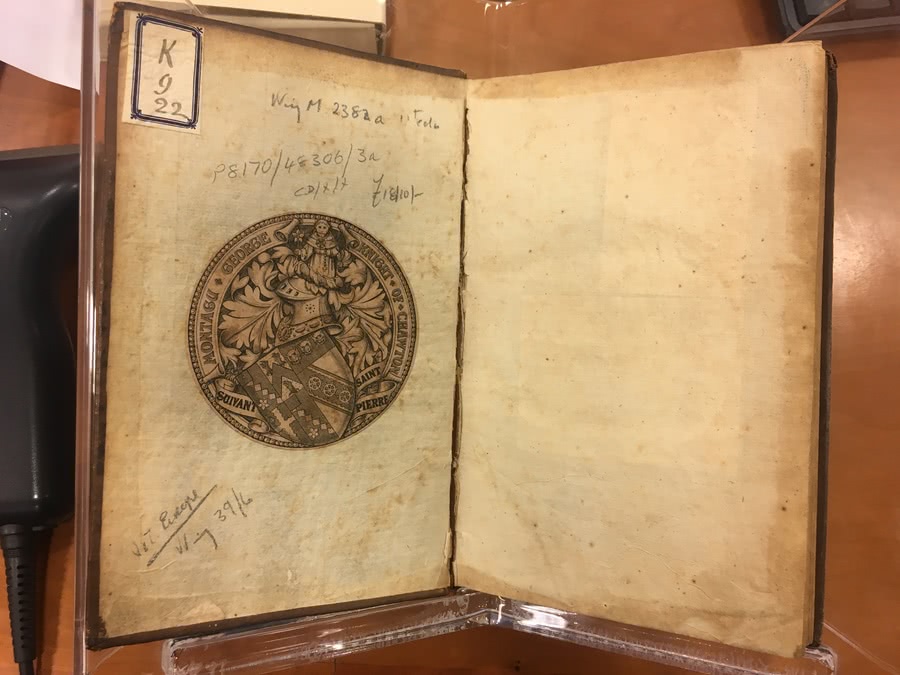 K
9
22
Wing M 2382a
P8170/48306/3a
CD/X/X £18/10/-
MONTAGU GEORGE KNIGHT OF CHAWTON
SUIVANT SAINT PIERRE
Wing 39/6